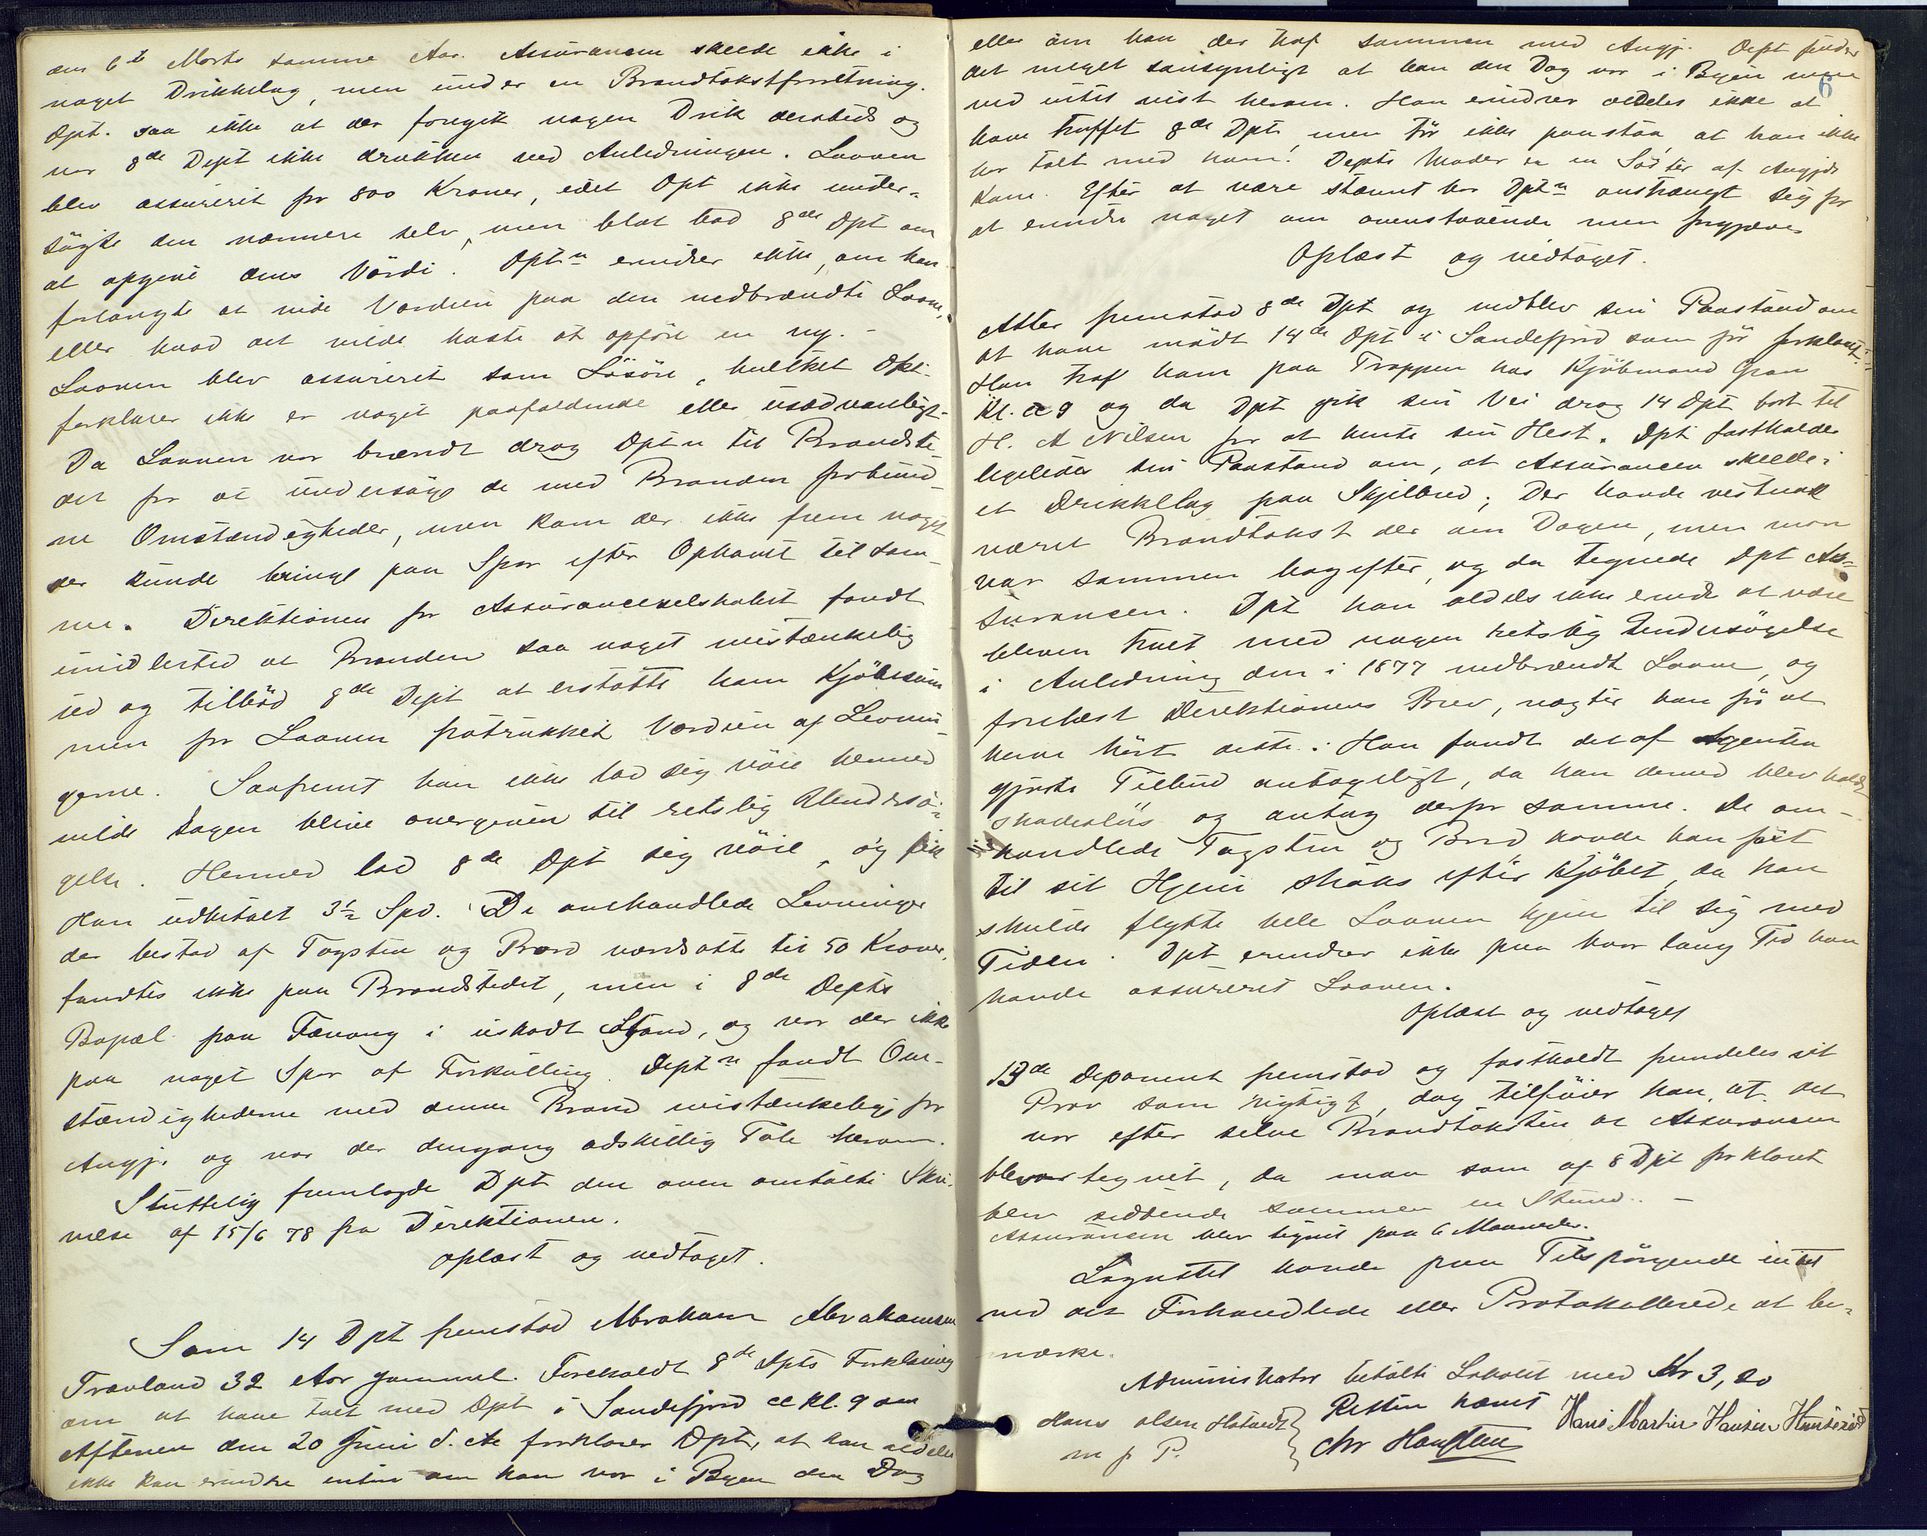 den 6te Marts samme Aar. Assurancen skede ikke i
noget Drikkelag, men under en Brandtakstforretning.
Dpt. saa ikke at der foregik nogen Drik dersteds og
var 8de Dept ikke drukken ved Anledningen. Laaven
blev assureret for 800 Kroner, idet Dpt ikke under-
søgte den nærmere selv, men blot bad 8de Dpt om
at opgive dens Værdi. Dptn erindrer ikke, om han
forlangte at vide Værdien paa den nedbrændte Laave,
eller hvad det vilde koste at opføre en ny. -
Laaven blev assureret som Løsøre, hvilket Dpt
forklarer ikke er noget paafaldende eller usædvanligt.
Da Laaven var brændt drog Dptn til Brandste-
det for at undersøge de med Branden forbund-
ne Omstændigheder, men kom der ikke frem noget
der kunde bringe paa Spor efter Ophavet til sam-
me. Direktionen for Assuranceselskabet fandt
imidlertid at Branden saa noget mistænkelig
ud og tilbød 8de Dept at erstatte ham Kjøbesum
men for Laaven fratrukket Værdien af Levnin-
gerne. Saafremt han ikke lod sig nøie hermed
vilde Sagen blive overgiven til retslig Undersø-
gelse. Hermed lod 8de Dpt sig nøie, og fik
Han udbetalt 3½ Spd. De omhandlede Levninger
der bestod af Tagsten og Bord værdsatte til 50 Kroner,
fandtes ikke paa Brandstedet, men i 8de Depts
Bopæl paa Fævang i uskadt Stand, og var der ikke
paa noget Spor af Forkulling. Deptn fandt Om-
stændighederne med denne Brand mistænkelige for
Angj. og var der dengang adskillig Tale herom.
Sluttelig fremlagde Dpt den oven omtalte Skri-
velse af 15/6 78 fra Direktionen.
Oplæst og vedtaget.
Som 14 Dpt fremstod Abraham Abrahamsen
Travland 32 Aar gammel. Foreholdt 8de Dpts Forklaring
om at have talt med Dpt i Sandefjord ca kl. 9 om
Aftenen den 20 Juni d. A forklarer Dpt, at han aldeles
ikke kan erindre enten om han var i Byen den Dag
6
eller om han der traf sammen med Angj. Dept finder
det meget sansynligt at han den Dag var i Byen men
ved intet vist herom. Han erindrer aldeles ikke at
have truffet 8de Dpt, men tør ikke paastaa, at han ikke
har talt med ham. Depts Moder er en Søster af Angjds
Kone. Efter at være stævnt har Dptn anstrængt sig for
at erindre noget om ovenstaaende men forgjæves
Oplæst og vedtaget.
Atter fremstod 8de Dpt og vedblev sin Paastand om
at have mødt 14de Dpt i Sandefjord som før forklaret.
Han traf ham paa Trappen hos Kjøbmand Gran
Kl. ca 9 og da Dpt gik sin Vei drog 14 Dpt bort til
H. A Nilsen for at hente sin Hest. Dpt fastholder
ligeledes sin Paastand om, at Assurancen skede i
et Drikkelag paa Skjelbred; Der havde vestnok
været Brandtakst der om Dagen, men man
var sammen bagefter, og da tegnede Dpt As-
surancen. Dpt kan aldels ikke erindre at være
bleven truet med nogen retslig Undersøgelse
i Anledning den i 1877 nedbrændt Laave, og
forelæst Direktionens Brev, nægter han før at
have hørt dette. Han fandt det af Agenten
gjorte Tilbud antageligt, da han dermed blev holdt
skadesløs og antog derfor samme. De om-
handlede Tagsten og Bord havde han ført
til sit Hjem straks efter Kjøbet, da han
skulde flytte hele Laaven hjem til sig med
Tiden. Dpt erindrer ikke paa hvor lang Tid han
havde assureret Laaven.
Oplæst og vedtaget
13de Deponent fremstod og fastholdt fremdeles sit
Prov som rigtigt, dog tilføier han, at det
var efter selve Brandtaksten at Assurancen
blev tegnet, da man som af 8 Dpt forklaret
blev siddende sammen en Stund. -
Assurancen blev tegnet paa 6 Maaneder.
Lagrettet havde paa Tilspørgende intet
ved det Forhandlede eller Protokollerede at be-
mærke.
Administrator betalte Lokalet med Kr 3,20
Retten hævet
Hans Olsen Hotvedt
m p P.
Chr Hansteen
Hans Martin Hansen Hunsrød